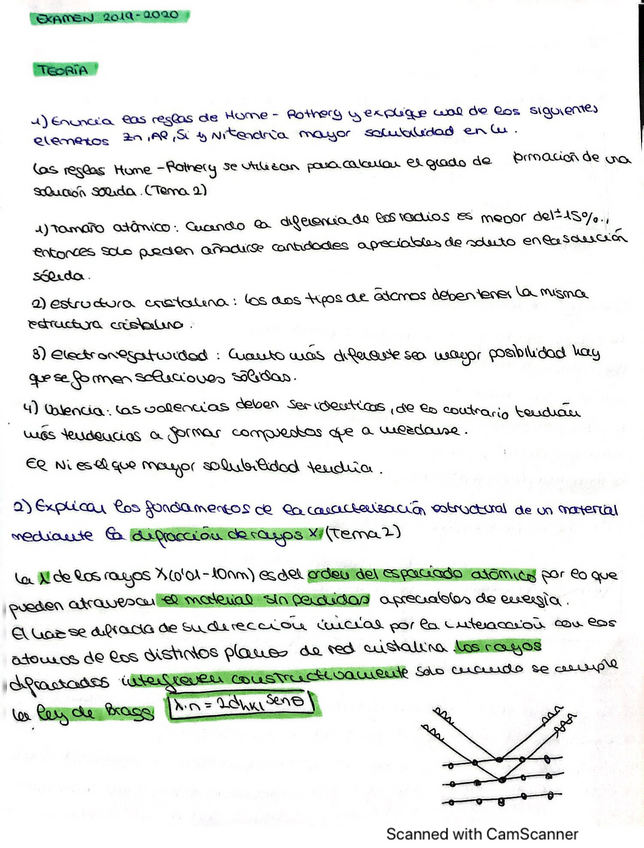 EXAMEN 2019-2020
TEORÍA
1) Enuncia las reglas de Hume-Rothery y explique cual de los siguientes
elementos Zn, Al, Si y Ni tendría mayor solubilidad en Cu.
Las reglas Hume-Rothery se utilizan para calcular el grado de ormación de una
solución sólida. (Tema 2)
1) Tamaño atómico: Cuando la diferencia de los radios es menor del ±15%.,
entonces solo pueden añadirse cantidades apreciables de soluto en la solución
sólida.
2) estructura cristalina: los dos tipos de átomos deben tener la misma
estructura cristalina.
3) electronegatividad: Cuanto más diferente sea mayor posibilidad hay
que se formen soluciones sólidas.
4) Valencia: Las valencias deben ser identicas, de lo contrario tendrán
más tendencias a formar compuestos que a mezclarse.
El Ni es el que mayor solubilidad tendría.
2) Explicar los fundamentos de la caracterización estructural de un material
mediante la difracción de rayos X (Tema 2)
La λ de los rayos X (0'01-10nm) es del orden del espaciado atómico por lo que
pueden atravesar el material sin perdidas apreciables de energía.
El haz se difracta de su dirección inicial por la interacción con los
átomos de los distintos planos de red cristalina los rayos
difractados interfieren constructivamente solo cuando se cumple
la ley de Bragg λ·n = 2dhkl senθ
Scanned with CamScanner